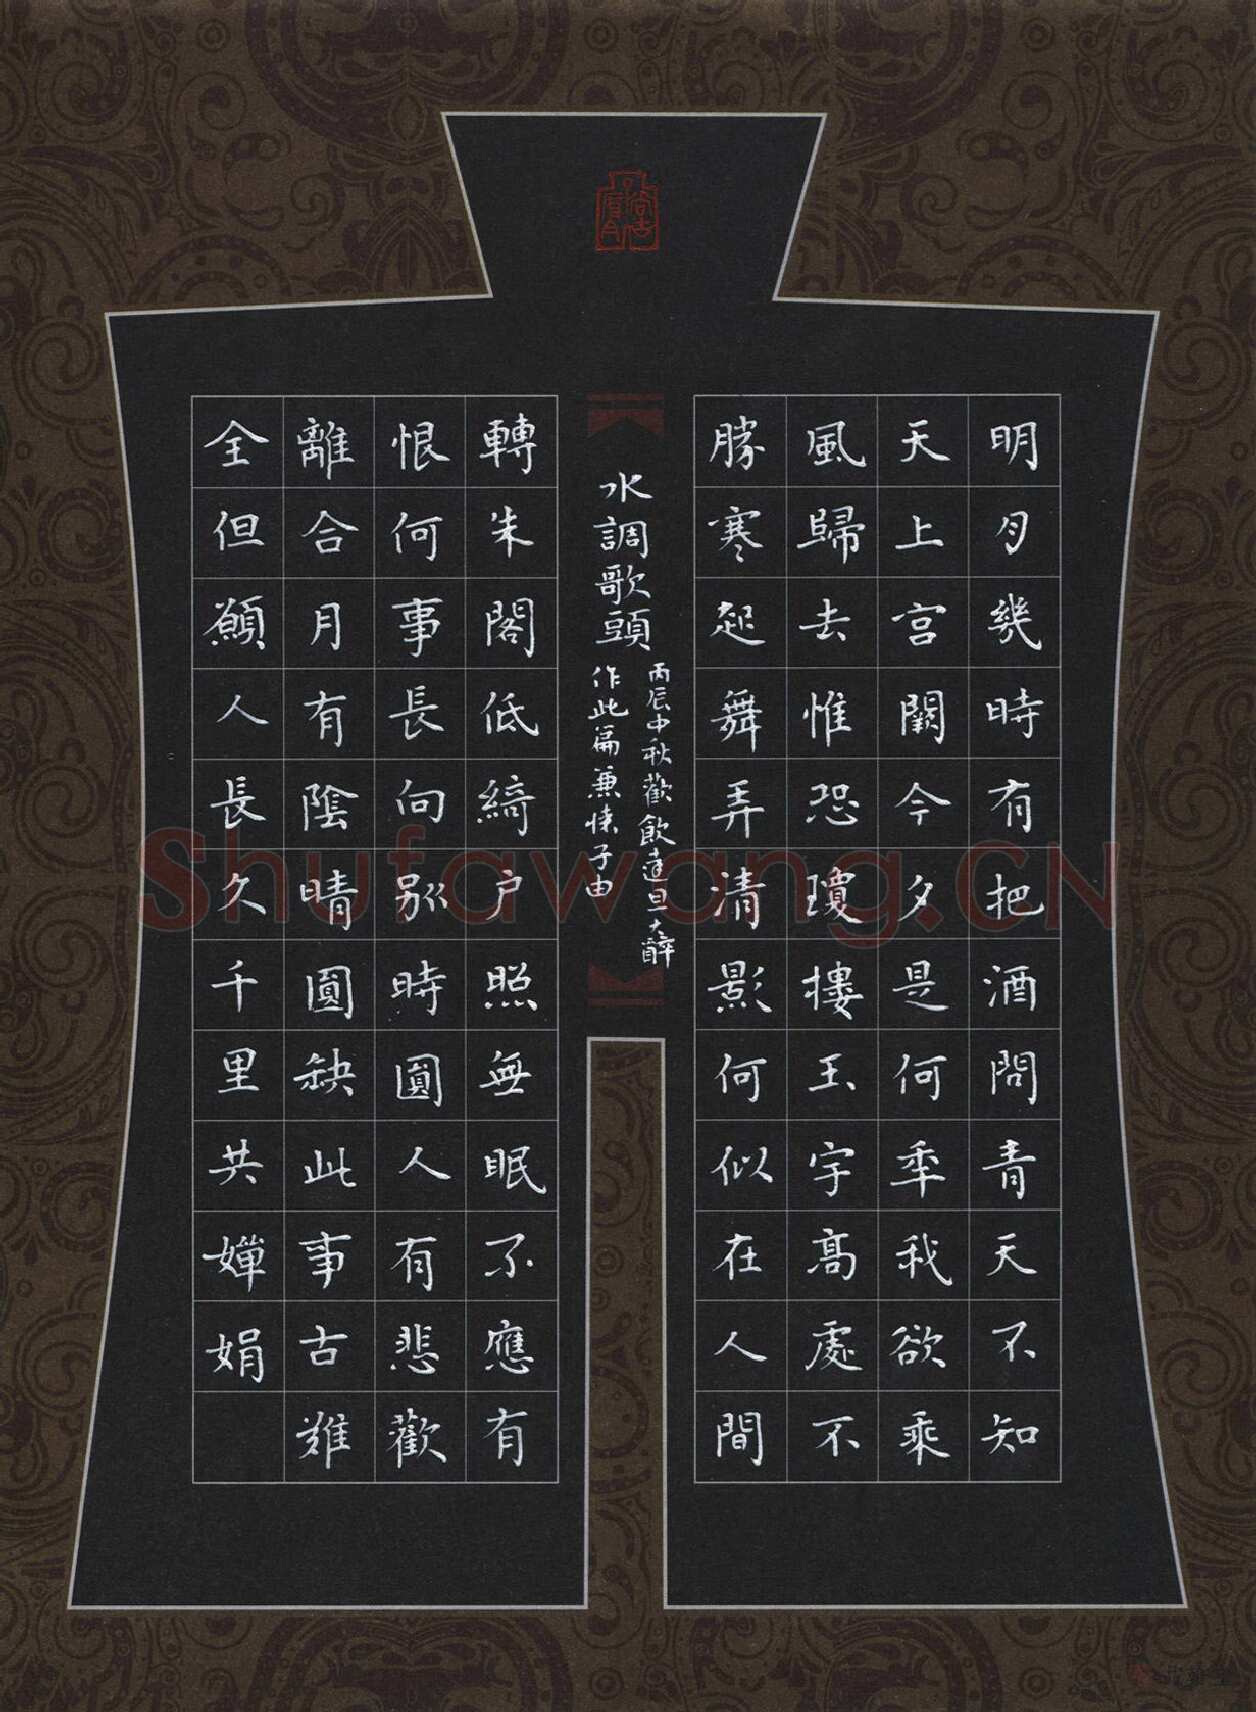 明月幾時有把酒問青天不知
天上宫闕今夕是何年我欲乘
風歸去惟恐瓊樓玉宇高處不
勝寒起舞弄清影何似在人間
水調歌頭
丙辰中秋歡飲達旦大醉
作此篇兼懷子由
轉朱閣低綺户照無眠不應有
恨何事長向别時圓人有悲歡
離合月有陰晴圓缺此事古難
全但願人長久千里共嬋娟
Shufawang.CN